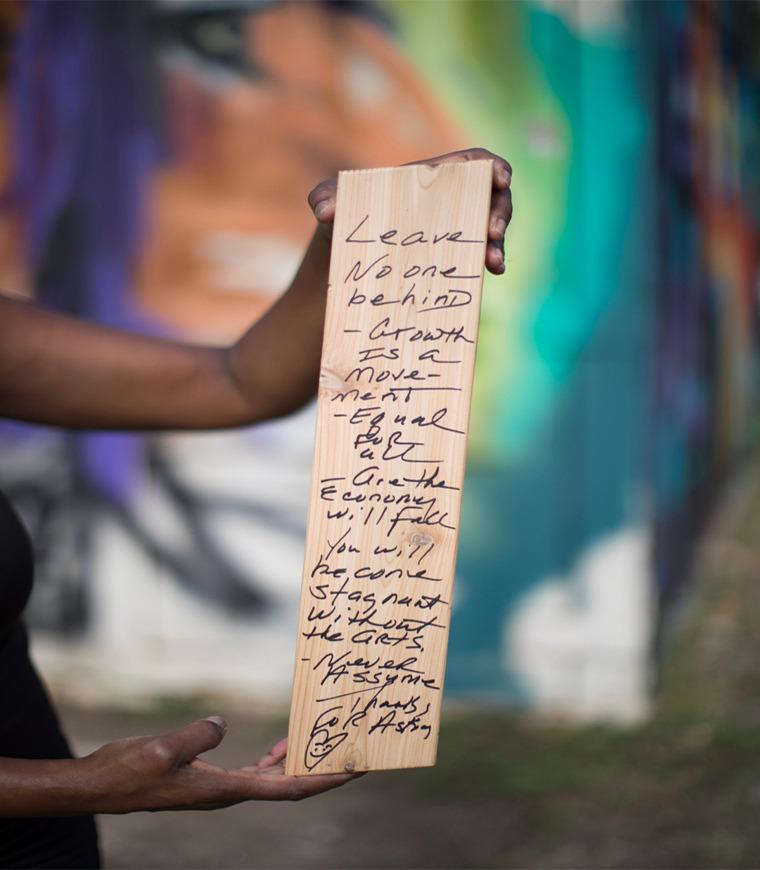 Leave
No one
behind
- Growth
Is a
move-
ment
- Equal
FOR
all
- Are the
Economy
will fall
You will
become
stagnant
without
the arts.
- Never
Assume
- Thanks,
FOR Asking